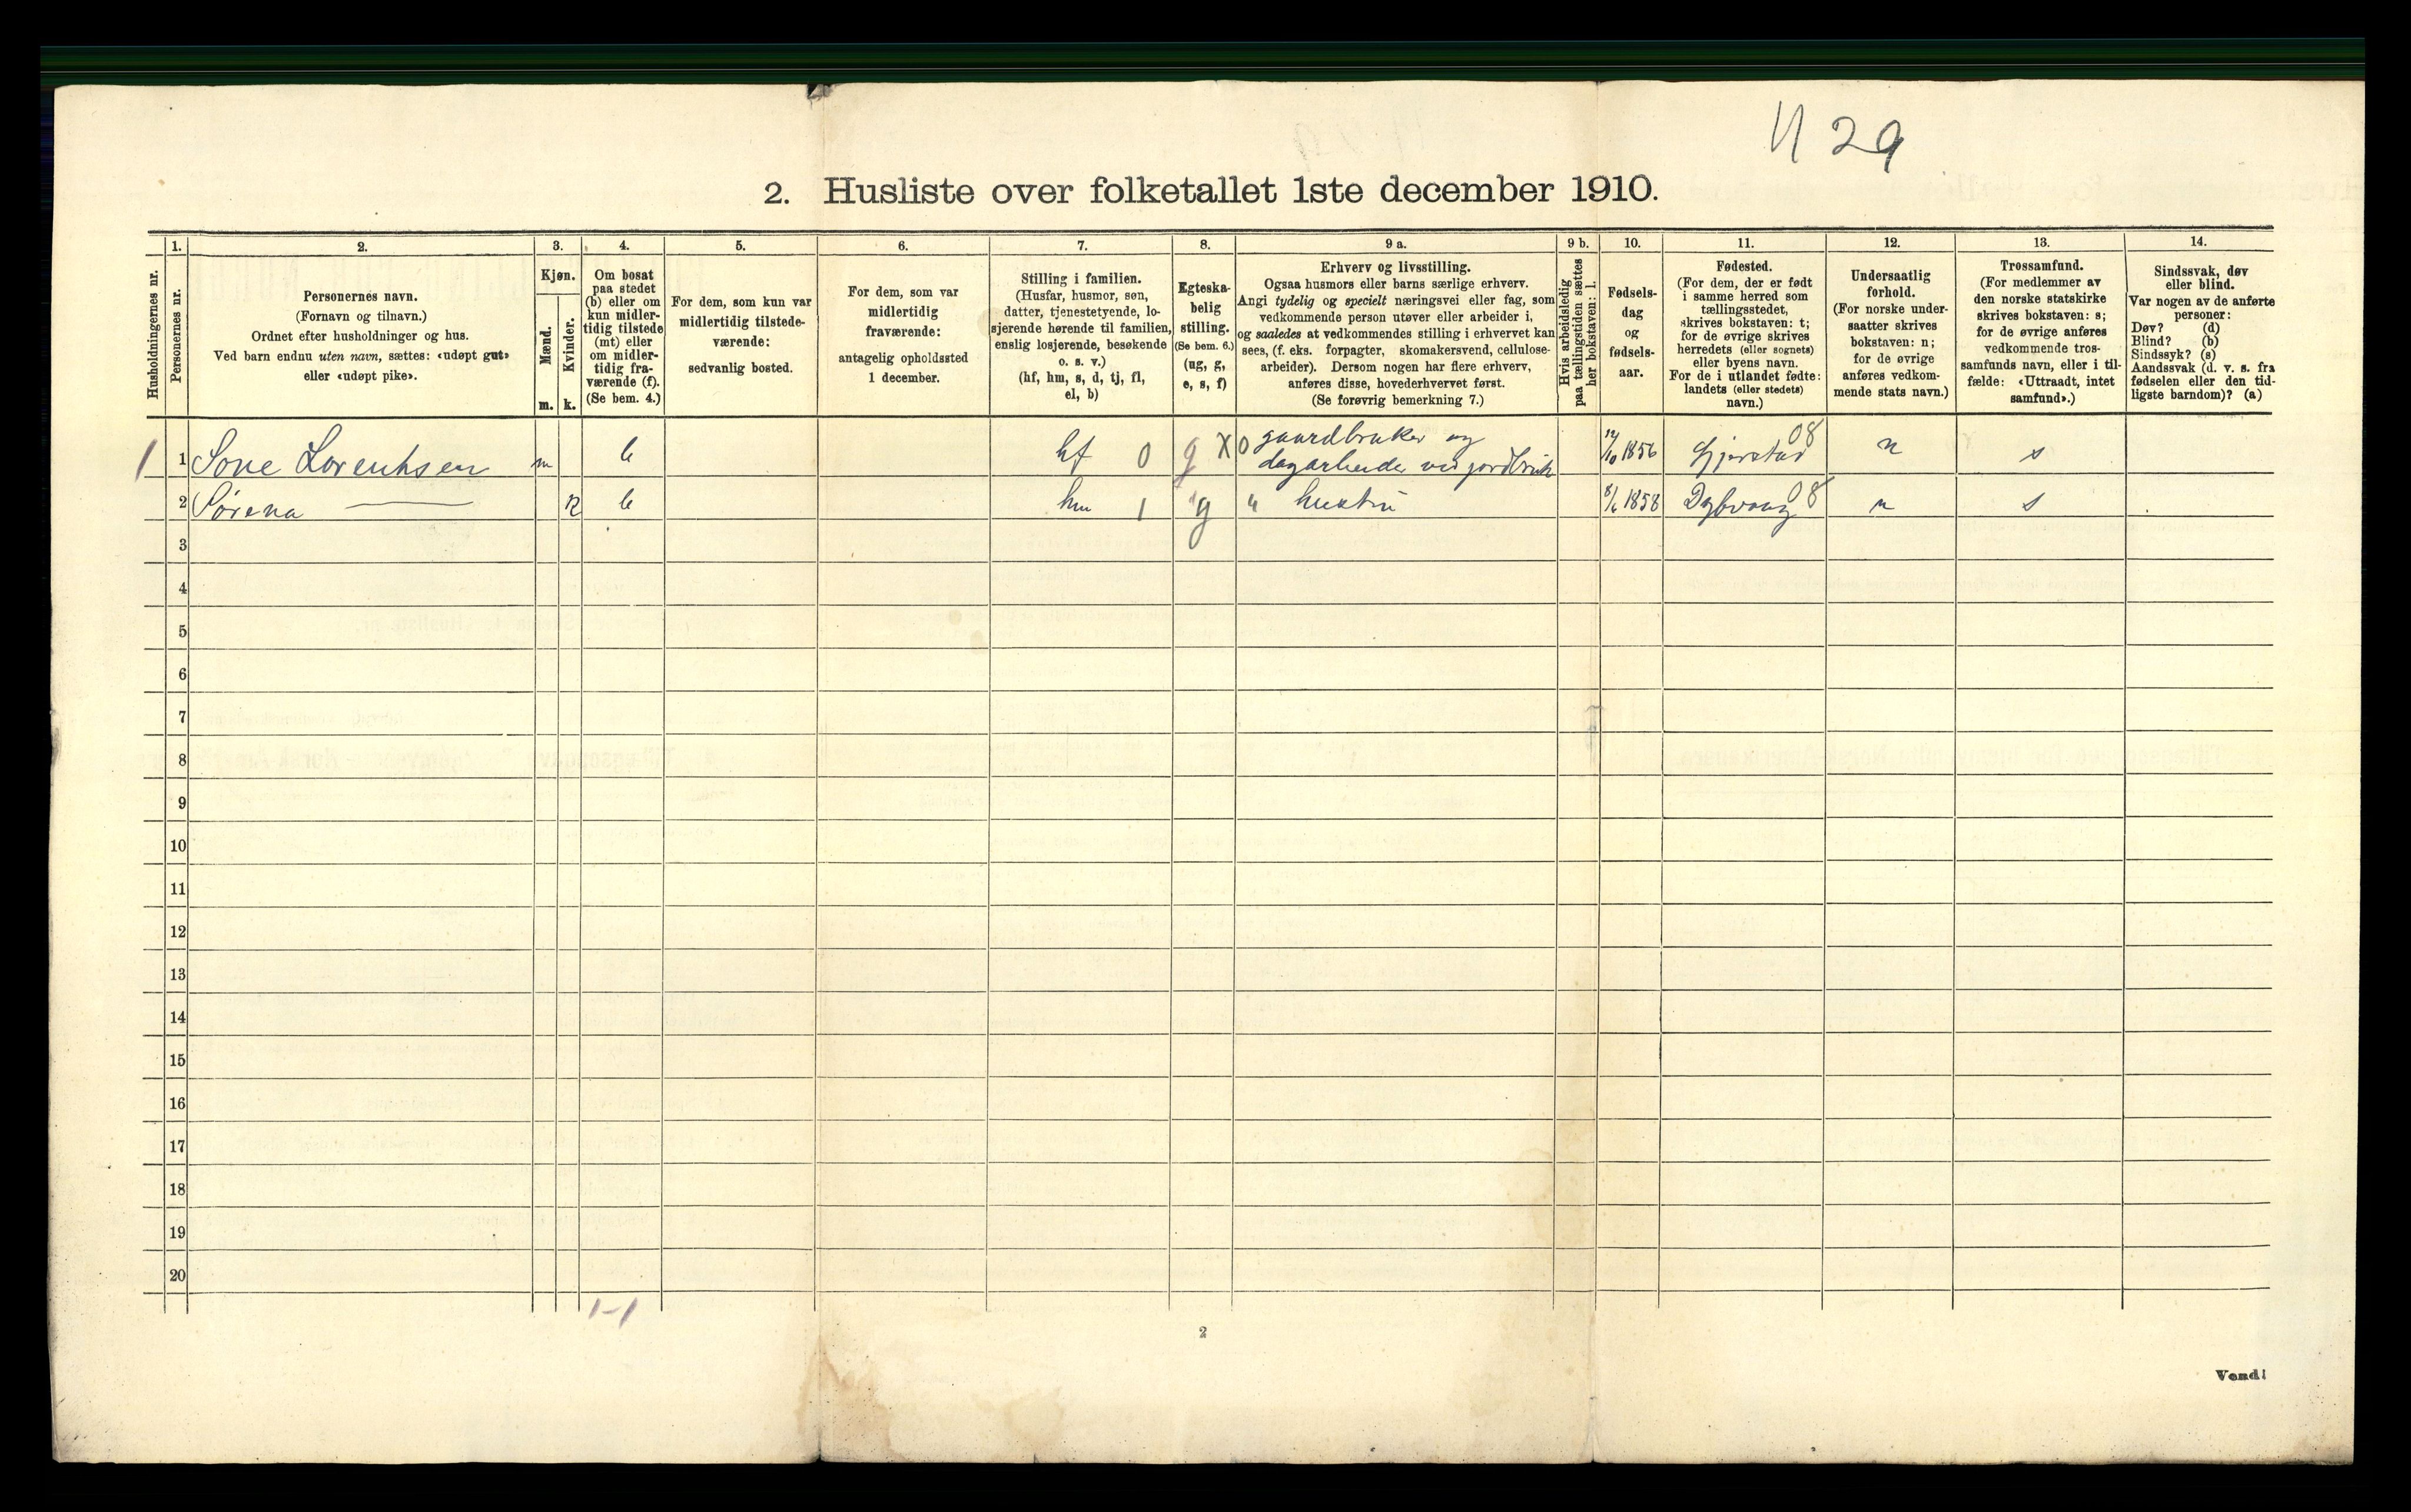 2. Husliste over folketallet 1ste december 1910.
Husholdningernes nr.
1.
Personernes nr.
2.
Personernes navn.
(Fornavn og tilnavn.)
Ordnet efter husholdninger og hus.
Ved barn endnu uten navn, sættes: «udøpt gut»
eller «udøpt pike».
3.
Kjøn.
Mænd.
m.
Kvinder.
k.
4.
Om bosat
paa stedet
(b) eller om
kun midler-
tidig tilstede
(mt) eller
om midler-
tidig fra-
værende (f).
(Se bem. 4.)
5.
For dem, som kun var
midlertidig tilstede-
værende:
sedvanlig bosted.
6.
For dem, som var
midlertidig
fraværende:
antagelig opholdssted
1 december.
7.
Stilling i familien.
(Husfar, husmor, søn,
datter, tjenestetyende, lo-
sjerende hørende til familien,
enslig losjerende, besøkende
o. s. v.)
(hf, hm, s, d, tj, fl,
el, b)
8.
Egteska-
belig
stilling.
(Se bem. 6.)
(ug, g,
e, s, f)
9 a.
Erhverv og livsstilling.
Ogsaa husmors eller barns særlige erhverv.
Angi tydelig og specielt næringsvei eller fag, som
vedkommende person utøver eller arbeider i,
og saaledes at vedkommendes stilling i erhvervet kan
sees, (f. eks. forpagter, skomakersvend, cellulose-
arbeider). Dersom nogen har flere erhverv,
anføres disse, hovederhvervet først.
(Se forøvrig bemerkning 7.)
9 b.
Hvis arbeidsledig
paa tællingstiden sættes
her bokstaven: l.
10.
Fødsels-
dag
og
fødsels-
aar.
11.
Fødested.
(For dem, der er født
i samme herred som
tællingsstedet,
skrives bokstaven: t;
for de øvrige skrives
herredets (eller sognets)
eller byens navn.
For de i utlandet fødte:
landets (eller stedets)
navn.)
12.
Undersaatlig
forhold.
(For norske under-
saatter skrives
bokstaven: n;
for de øvrige
anføres vedkom-
mende stats navn.)
13.
Trossamfund.
(For medlemmer av
den norske statskirke
skrives bokstaven: s;
for de øvrige anføres
vedkommende tros-
samfunds navn, eller i til-
fælde: «Uttraadt, intet
samfund».)
14.
Sindssvak, døv
eller blind.
Var nogen av de anførte
personer:
Døv? (d)
Blind? (b)
Sindssyk? (s)
Aandssvak (d. v. s. fra
fødselen eller den tid-
ligste barndom)? (a)
1 1 Sove Lorentsen m b hf 0 g X 0 gaardbruker og
dagarbeider ved jordbruk 12/10 1856 Gjerstad 08 n s
2 Sørena — k b hm 1 g " hustru 8/6 1858 Dybvaag 08 n s
3
4
5
6
7
8
9
10
11
12
13
14
15
16
17
18
19
20
1-1
2
Vend!